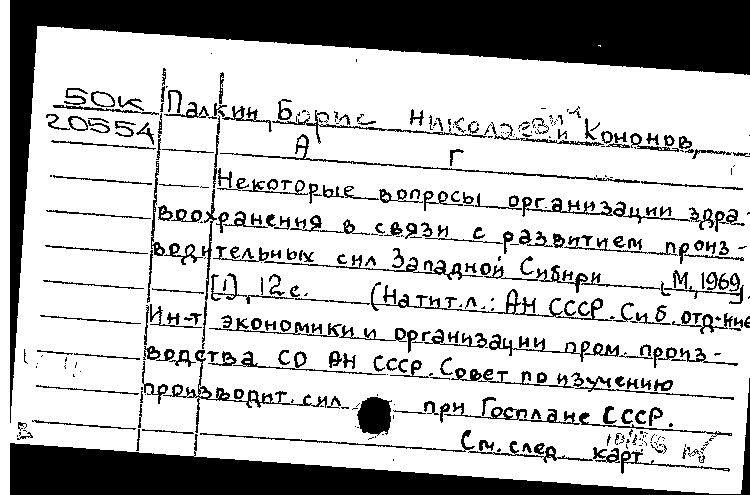 50К Палкин, Борис Николаевич и Кононов,
20554 А Г
Некоторые вопросы организации здра-
воохранения в связи с развитием произ-
водительных сил Западной Сибири [М, 1969]
[1], 12 с. (На тит.л.: АН СССР. Сиб. отд-ние
Ин-т экономики и организации пром. произ-
водства СО АН СССР. Совет по изучению
производит. сил при Госплане СССР.
См. след. карт.